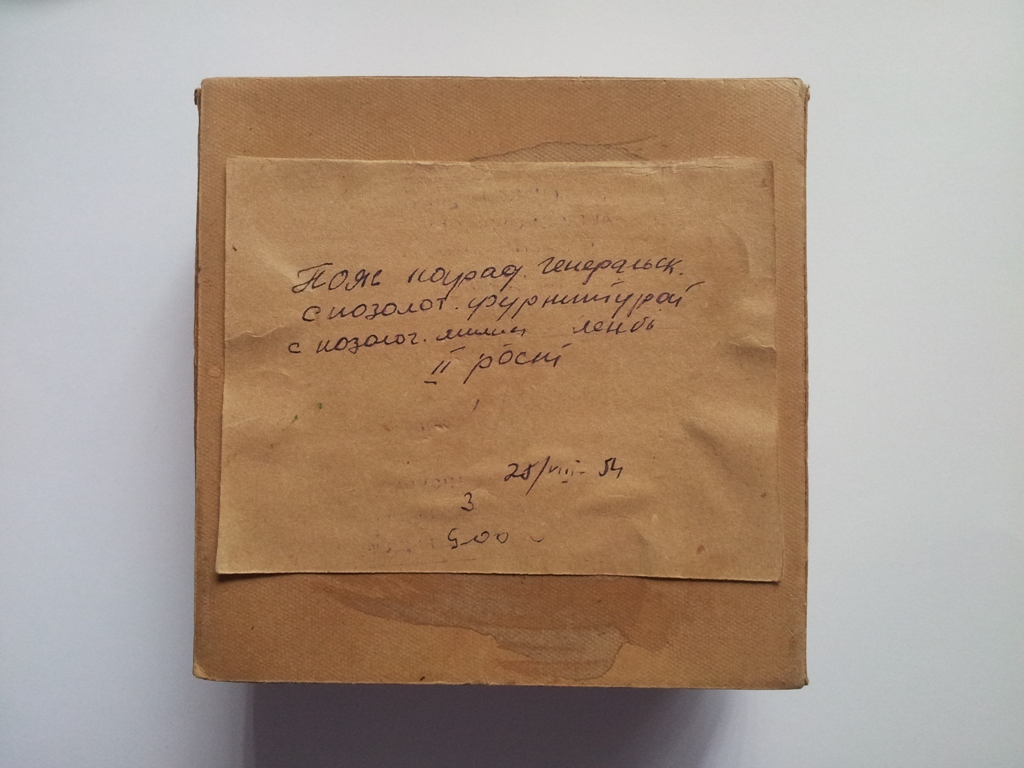 Пояс парад. генеральск.
с позолот. фурнитурой
с позолот. ленты
II рост
25/VIII-54
3
5-00